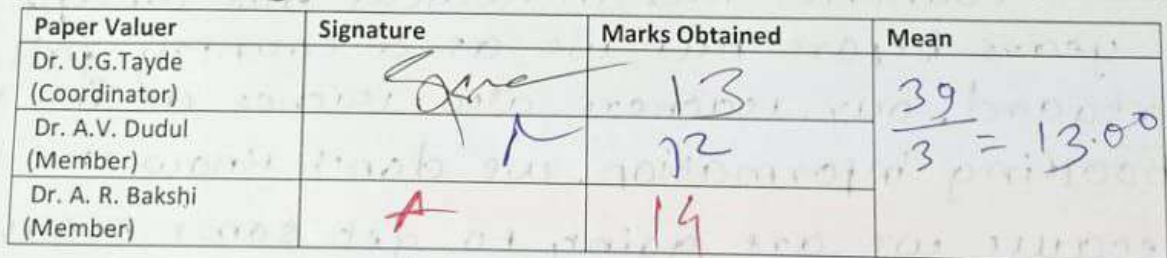 Paper Valuer Signature Marks Obtained Mean
Dr. U.G.Tayde
(Coordinator) 13 39/3 = 13.00
Dr. A.V. Dudul
(Member) 12
Dr. A. R. Bakshi
(Member) 14